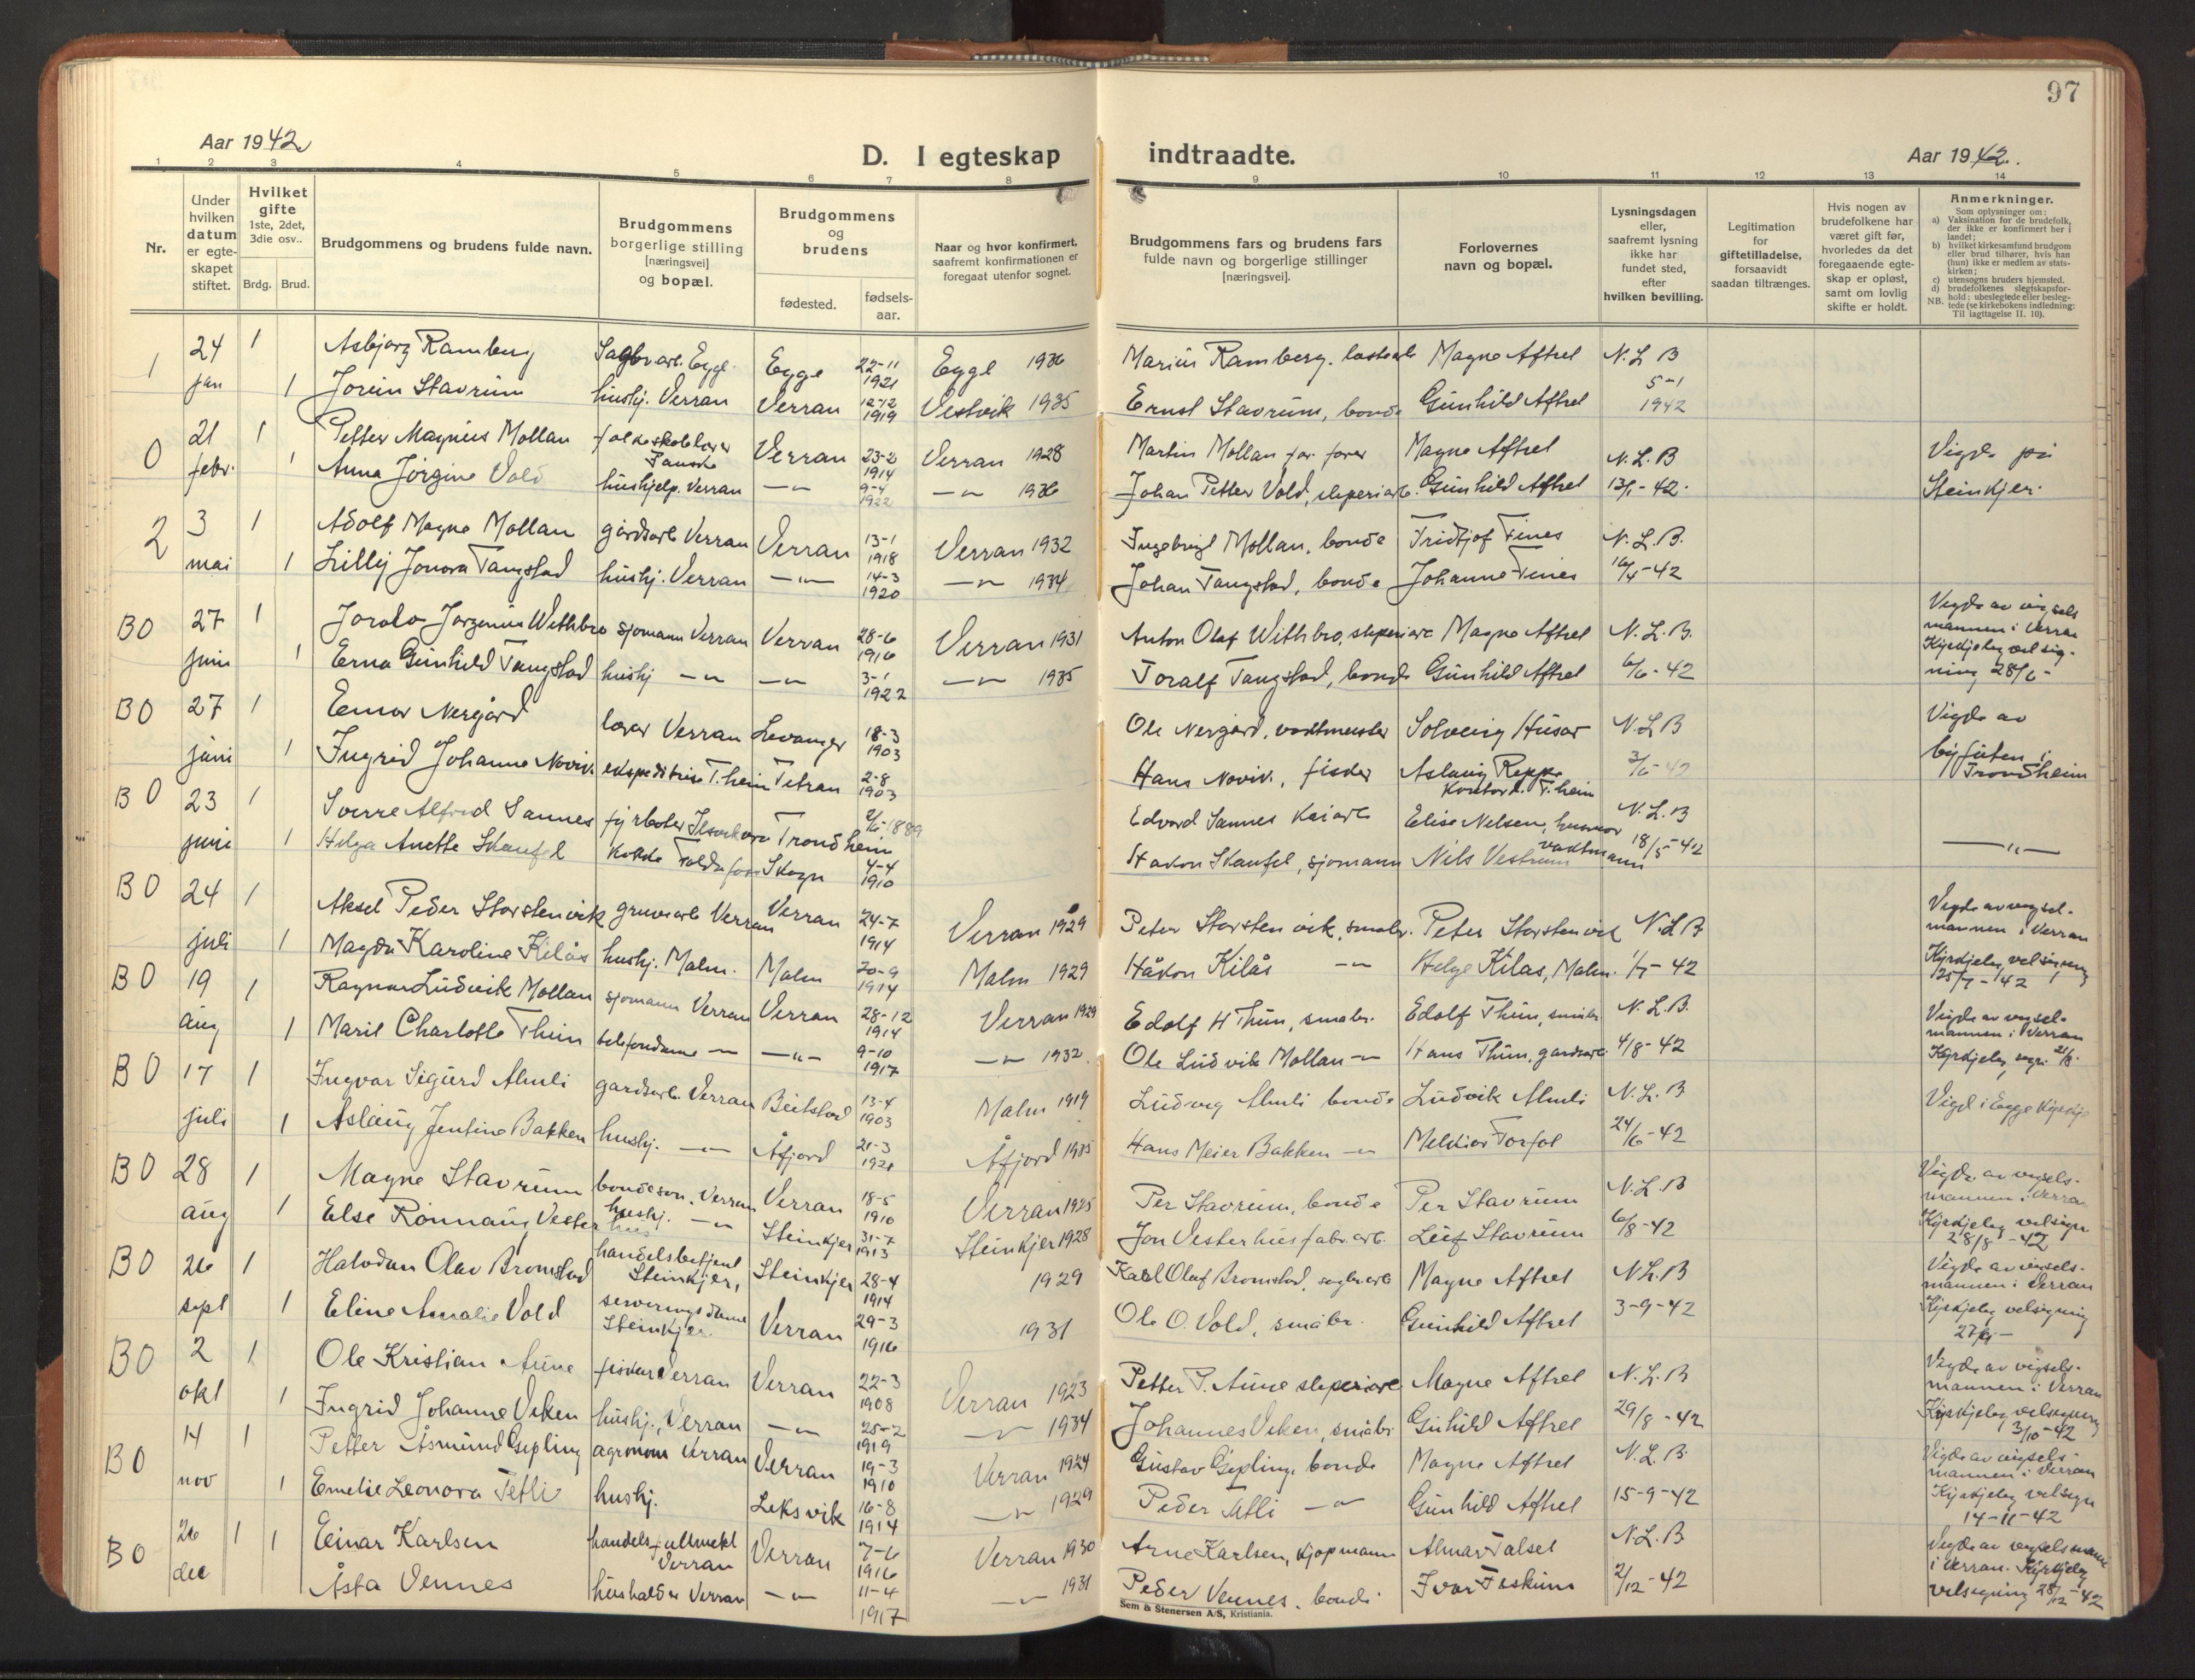 97
Aar 1942.
D. I egteskap indtraadte.
Aar 1942.
1 2 3 4 5 6 7 8 9 10 11 12 13 14
Nr.
Under hvilken datum er egte-skapet stiftet.
Hvilket gifte 1ste, 2det, 3die osv..
Brdg. Brud.
Brudgommens og brudens fulde navn.
Brudgommens borgerlige stilling [næringsvei] og bopæl.
Brudgommens og brudens
fødested. fødsels-aar.
Naar og hvor konfirmert, saafremt konfirmationen er foregaat utenfor sognet.
Brudgommens fars og brudens fars fulde navn og borgerlige stillinger [næringsvei].
Forlovernes navn og bopæl.
Lysningsdagen eller, saafremt lysning ikke har fundet sted, efter hvilken bevilling.
Legitimation for giftetilladelse, forsaavidt saadan tiltrænges.
Hvis nogen av brudefolkene har været gift før, hvorledes da det foregaaende egte-skap er opløst, samt om lovlig skifte er holdt.
Anmerkninger.
Som oplysninger om:
a) Vaksination for de brudefolk, der ikke er konfirmert her i landet;
b) hvilket kirkesamfund brudgom eller brud tilhører, hvis han (hun) ikke er medlem av stats-kirken;
c) utensogns bruders hjemsted.
d) brudefolkenes slegtskapsfor-hold: ubeslegtede eller besleg-tede (se kirkebokens indledning: NB. Til iagttagelse II. 10).
1 24 1 Asbjørg Ramberg Sagbr.arb. Egge Egge 22-11 1921 Egge 1936 Marius Ramberg. Magne Aftret N.L.B
jan 1 Jorein Stavrum hushj. Verran Verran 12-12 1919 Vestvik 1935 Ernst Stavrum, bonde Gunhild Aftret 5-1 1942
0 21 1 Petter Magnus Mollan folkeskolelærer Verran 23-2 1914 Verran 1928 Martin Mollan Magne Aftret N.L.B Vigde på
febr. 1 Anna Jørgine Vold hushjelp. Verran —"— 9-4 1922 —"— 1936 Johan Petter Vold, sliperiarb. Gunhild Aftret 13/1-42. Steinkjer.
2 3 1 Adolf Magne Mollan gårdsarb Verran Verran 13-1 1918 Verran 1932 Ingebrigt Mollan, bonde Fridtjof Tines N.L.B.
mai 1 Lilly Jonora Tangstad hushj. Verran —"— 14-3 1920 —"— 1934 Johan Tangstad, bonde Johanne Tines 16/4-42
BO 27 1 Withbro sjømann Verran Verran 28-6 1916 Verran 1931 Anton Olaf Withbro, sliperiarb Magne Aftret N.L.B. Vigde av vigsels mannen i Verran
juni 1 Erna Gunhild Tangstad hushj —"— —"— 3-1 1922 —"— 1935 Toralf Tangstad, bonde Gunhild Aftret 6/6-42 Kyrkjeleg velsigning 28/6-
BO 27 1 Einar Nergård lærer Verran Levanger 18-3 1903 Ole Nergård, vaktmester Solveig Husar N.L.B Vigde av
juni 1 Ingrid Johanne Novik. ekspeditrise T.heim Titran 2-8 1903 Hans Novik, fisker Aslaug Reppe Kontord. T.heim 3/6-42 byfuten i Trondheim
BO 23 1 Sverre Alfred Sannes fyrbøter Trondheim 2/6 1889 Edvard Sannes Kaiarb Elise Nelsen, husmor N.L.B
juni 1 Helga Anette Skaufel Kokke Foldafoss Skogn 4-4 1910 Håkon Skaufel, sjømann Nils Vestrum vaktmann 18/5-42 —"—
BO 24 1 Aksel Peder Storstenvik gruvearb Verran Verran 24-7 1914 Verran 1929 Peter Storstenvik, småbr. Peter Storstenvik N.L.B Vigde av vigsel-mannen i Verran
juli 1 Magda Karoline Kilås hushj. Malm. Malm 20-9 1914 Malm 1929 Håkon Kilås —"— Helge Kilås, Malm. 1/7-42 Kyrkjeleg velsigning 25/7-42
BO 19 1 Ragnar Ludvik Mollan sjømann Verran Verran 28-12 1914 Verran 1929 Edolf H Thun, småbr. Edolf Thun, småbr N.L.B. Vigde av vigsel-mannen i Verran
aug 1 Marit Charlotte Thun telefondame —"— —"— 9-10 1917 —"— 1932. Ole Ludvik Mollan —"— Hans Thun, gardsarb 4/8-42 Kyrkjeleg
BO 17 1 Ingvar Sigurd Almli gardsarb. Verran Beitstad 13-4 1903 Malm 1919 Ludvig Almli bonde Ludvik Almli N.L.B Vigd i Egge kyrkje
juli 1 Aslaug Jentine Bakken hushj. —"— Åfjord 21-3 1921 Åfjord 1935 Hans Meier Bakken —"— Melkior 24/6-42
BO 28 1 Magne Stavrum bondesøn. Verran Verran 18-5 1910 Verran 1925 Per Stavrum, bonde Per Stavrum N.L.B Vigde av vigsels-mannen i Verra
aug 1 Else Rønnaug Vesterhus hushj. —"— Steinkjer 31-7 1913 Steinkjer 1928 Jon Vesterhus fabr.arb. Leif Stavrum 6/8-42 Kyrkjeleg velsign 28/8-42
BO 26 1 Halvdan Olav Bromstad handelsbetjent Steinkjer, Steinkjer 28-4 1914 1929 Karl Olaf Bromstad, sagbr.arb Magne Aftret N.L.B Vigde av vigsels-mannen i Verran
sept 1 Eline Amalie Vold serveringsdame Steinkjer Verran 29-3 1916 1931 Ole O. Vold, småbr. Gunhild Aftret 3-9-42 Kyrkjeleg velsigning 27/9-
BO 2 1 Ole Kristian Aune fisker Verran Verran 22-3 1908 Verran 1923 Petter P. Aune sliperiarb Magne Aftret N.L.B Vigde av vigsels-mannen i Verran
okt 1 Ingrid Johanne Veken hushj., Verran —"— 25-2 1919 —"— 1934 Johannes Veken, småbr Gunhild Aftret 29/8-42 Kyrkjeleg velsigning 3/10-42
BO 14 1 Petter Asmund Gipling agronom Verran Verran 19-3 1910 Verran 1924 Gustav Gipling, bonde Magne Aftret N.L.B Vigde av vigsels-mannen i Verran
nov 1 Emelie Leonora Tetli hushj. Leksvik 16-8 1914 —"— 1929 Peder Tetli —"— Gunhild Aftret 15-9-42 Kyrkjeleg velsign 14-11-42
BO 26 1 1 Einar Karlsen handelsfullmekt Verran Verran 7-6 1916 Verran 1930 Arne Karlsen, kjøpmann Almar Talset N.L.B Vigde av vigselsmann
dec Åsta Vennes husholder Verran —"— 11-4 1917 —"— 1931 Peder Vennes. bonde Ivar Feskum 2/12-42 i Verran. Kyrkjeleg velsigning 28/12-42
Sem & Stenersen A/S, Kristiania.